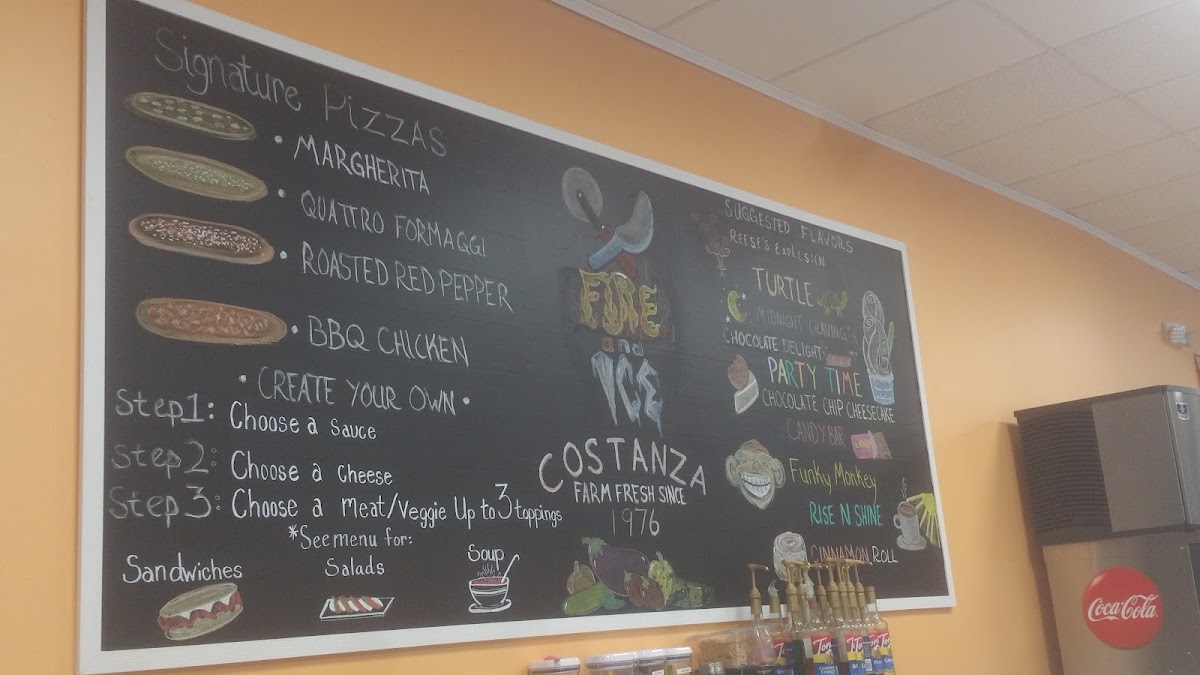 Signature Pizzas
• MARGHERITA
• QUATTRO FORMAGGI
• ROASTED RED PEPPER
• BBQ CHICKEN
• CREATE YOUR OWN •
Step 1: Choose a sauce
Step 2: Choose a cheese
Step 3: Choose a meat/Veggie Up to 3 toppings
*See menu for:
Sandwiches
Salads
Soup
FIRE
and
ICE
COSTANZA
FARM FRESH SINCE
1976
SUGGESTED FLAVORS
REESE'S EXPLOSION
TURTLE
MIDNIGHT CRAVING
CHOCOLATE DELIGHT
PARTY TIME
CHOCOLATE CHIP CHEESECAKE
CANDY BAR
Funky Monkey
RISE N SHINE
CINNAMON ROLL
Coca-Cola